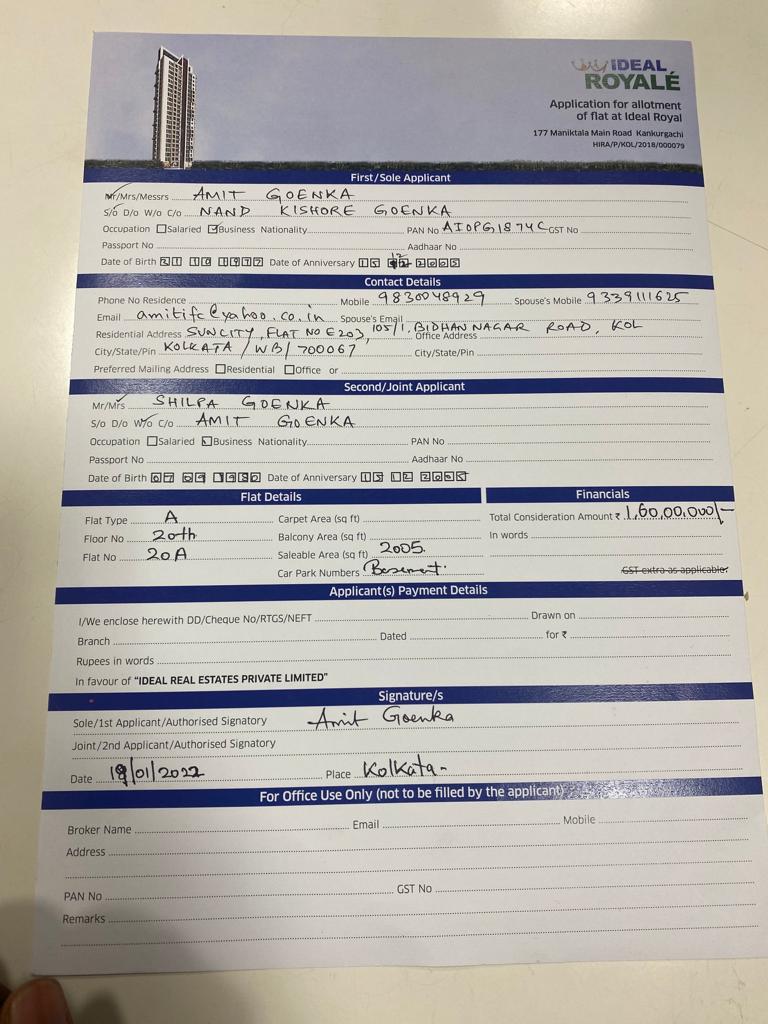 IDEAL
ROYALÉ
Application for allotment
of flat at Ideal Royal
177 Maniktala Main Road Kankurgachi
HIRA/P/KOL/2018/000079
First/Sole Applicant
Mr/Mrs/Messrs AMIT GOENKA
S/o D/o W/o C/o NAND KISHORE GOENKA
Occupation Salaried Business Nationality PAN No AIOPG1874C GST No
Passport No Aadhaar No
Date of Birth 21 10 1977 Date of Anniversary 15 12 2005
Contact Details
Phone No Residence Mobile 9830048929 Spouse's Mobile 9339111625
Email amitifc@yahoo.co.in Spouse's Email
Residential Address SUNCITY, FLAT NO E203, 105/1, BIDHAN NAGAR ROAD, KOL Office Address
City/State/Pin KOLKATA / WB / 700067 City/State/Pin
Preferred Mailing Address Residential Office or
Second/Joint Applicant
Mr/Mrs SHILPA GOENKA
S/o D/o W/o C/o AMIT GOENKA
Occupation Salaried Business Nationality PAN No
Passport No Aadhaar No
Date of Birth 07 09 1980 Date of Anniversary 15 12 2005
Flat Details Financials
Flat Type A Carpet Area (sq ft) Total Consideration Amount ₹ 1,60,00,000/-
Floor No 20th Balcony Area (sq ft) In words
Flat No 20A Saleable Area (sq ft) 2005.
Car Park Numbers Basement. GST extra as applicable.
Applicant(s) Payment Details
I/We enclose herewith DD/Cheque No/RTGS/NEFT Drawn on
Branch Dated for ₹
Rupees in words
In favour of "IDEAL REAL ESTATES PRIVATE LIMITED"
Signature/s
Sole/1st Applicant/Authorised Signatory Amit Goenka
Joint/2nd Applicant/Authorised Signatory
Date 19/01/2022 Place Kolkata-
For Office Use Only (not to be filled by the applicant)
Broker Name Email Mobile
Address
PAN No GST No
Remarks